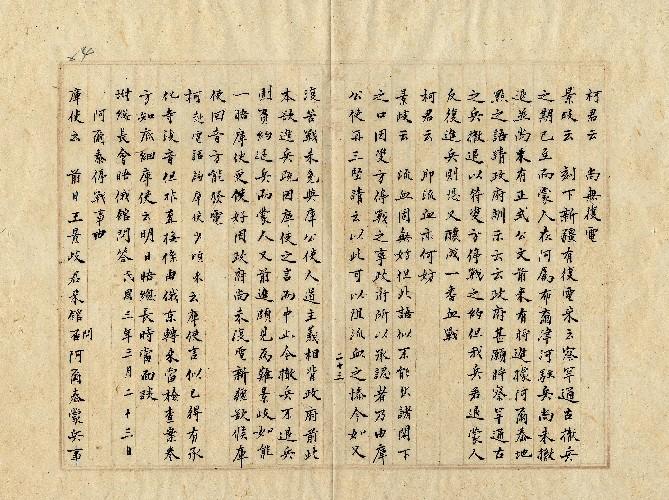 柯君云 尚無復電
景歧云 刻下新疆有復電來云察罕通古撤兵
之期已至而蒙人在河屬布爾津河駐兵尚未撤
退並尚未有正式公文前來有將進據阿爾泰地
點之語請政府訓示云云政府甚願將察罕通古
之兵撤退以符雙方停戰之約但我兵若退蒙人
反復進兵則恐又釀成一番血戰
柯君云 即流血亦何妨
景歧云 流血固無妨但此語似不能出諸閣下
之口因雙方停戰之事政府所以承認者乃由庫
公使再三堅請云以此可以阻流血之慘今如又
二十三
復苦戰未免與庫公使人道主義相背政府前此
本欲進兵疏因庫使之言而中止今撤兵不退兵
則資約退兵而蒙人又前進頗見為難景歧如能
一晤庫使更好因政府尚未復電新疆欲候庫
使回音方能發電
柯赴電話詢庫使少頃來云庫使言似已得有承
化寺復音但非直接係由俄京轉來當檢查案卷
方知底細庫使云明日晤總長時當面談
附總長會晤俄館問答 民國三年三月二十三日
阿爾泰停戰事由
庫使云 前日王景歧君來館面問阿爾泰蒙兵事